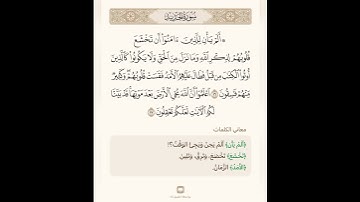 سُورَةُ الحَدِيدِ
۞ أَلَمْ يَأْنِ لِلَّذِينَ ءَامَنُوٓا۟ أَن تَخْشَعَ
قُلُوبُهُمْ لِذِكْرِ ٱللَّهِ وَمَا نَزَلَ مِنَ ٱلْحَقِّ وَلَا يَكُونُوا۟ كَٱلَّذِينَ
أُوتُوا۟ ٱلْكِتَٰبَ مِن قَبْلُ فَطَالَ عَلَيْهِمُ ٱلْأَمَدُ فَقَسَتْ قُلُوبُهُمْ ۖ وَكَثِيرٌ
مِّنْهُمْ فَٰسِقُونَ ١٦ ٱعْلَمُوٓا۟ أَنَّ ٱللَّهَ يُحْىِ ٱلْأَرْضَ بَعْدَ مَوْتِهَا ۚ قَدْ بَيَّنَّا
لَكُمُ ٱلْءَايَٰتِ لَعَلَّكُمْ تَعْقِلُونَ ١٧
معاني الكلمات
﴿أَلَمْ يَأْنِ﴾ أَلَمْ يَحِنْ وَيَجِئِ الوَقْتُ؟!
﴿تَخْشَعَ﴾ تَخْضَعَ، وَتَرِقَّ، وَتَلِينَ.
﴿الأَمَدُ﴾ الزَّمَانُ.